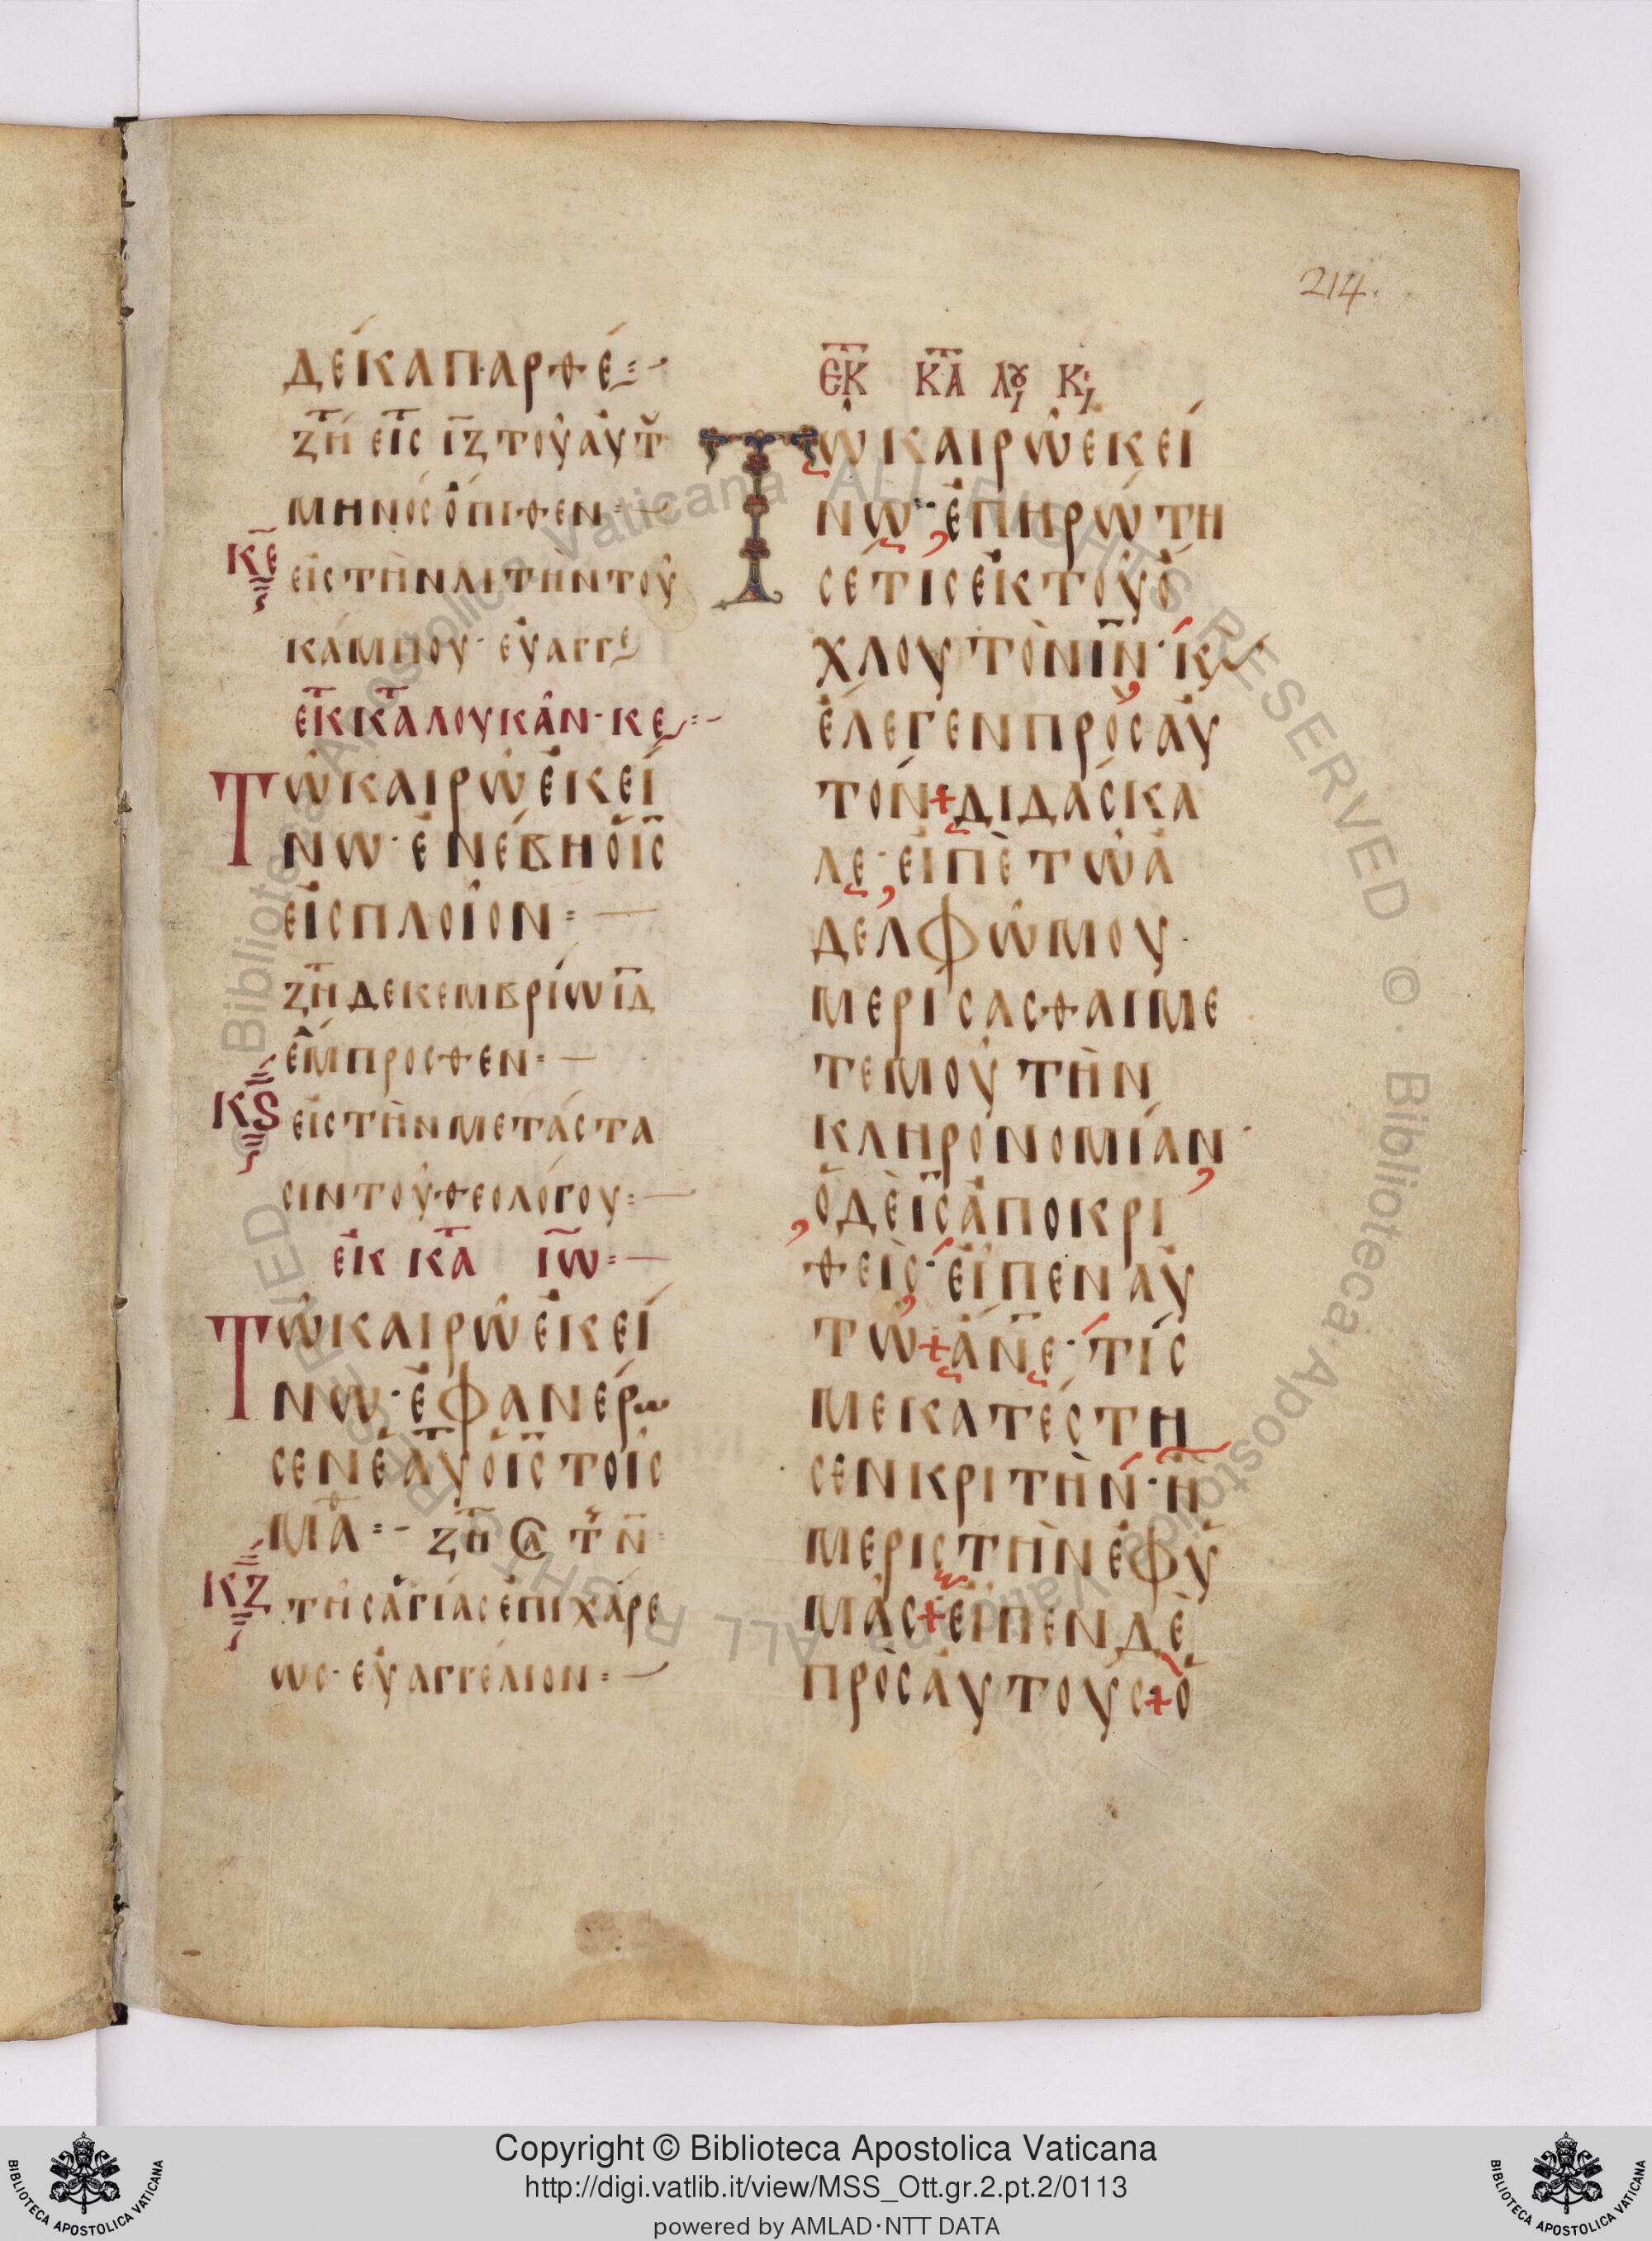 214.
ΔΈΚΑΠΑΡΘΈ
ΖΗ ΕἸС ΙΖ ΤΟΥ͂ΑΥΤ
ΜΗΝΌСὈΠΙΘΕΝ
ΚΕ
ΕἸСΤῊΝΛΙΤῊΝΤΟΥ͂
ΚΆΜΠΟΥ· ΕΥ̓ΑΓΓΕ
ΕΚΚΑΛΟΥΚΑ͂Ν· ΚΕ
ΤΩ͂ΚΑΙΡΩ͂ἘΚΕΊ
ΝΩ· ἘΝΈΒΗὉΙС
ΕἸСΠΛΟΙ͂ΟΝ
ΖΗ ΔΕΚΕΜΒΡΊΩ ΙΔ
ἜΜΠΡΟСΘΕΝ
ΚϚ
ΕἸСΤῊΝΜΕΤΆСΤΑ
СΙΝΤΟΥ͂ΘΕΟΛΌΓΟΥ
ΕΚ ΚΑ ΙΩ
ΤΩ͂ΚΑΙΡΩ͂ἘΚΕΊ
ΝΩ· ἘΦΑΝΈΡΩ
СΕΝΕΑΥὉΙС ΤΟΙ͂С
ΜΑΘ ΖΗ СΑ Τ Ν
ΚΖ
ΤΗ͂СἉΓΊΑСἘΠΙΧΆΡΕ
ΩС· ΕΥ̓ΑΓΓΈΛΙΟΝ
ΕΚ ΚΑ ΛΟΥ Κ
ΤΩ͂ΚΑΙΡΩ͂ἘΚΕΊ
ΝΩ· ἘΠΗΡΏΤΗ
СΈΤΙСἘΚΤΟΥ͂Ὄ
ΧΛΟΥΤῸΝΙΝ· Κ
ἜΛΕΓΕΝΠΡῸСΑΥ̓
ΤΌΝ+ΔΙΔΆСΚΑ
ΛΕ· ΕἸΠῈΤΩ͂Ἀ
ΔΕΛΦΩ͂ΜΟΥ·
ΜΕΡΊСΑСΘΑΙΜΕ
ΤΕΜΟΥ͂ΤῊΝ
ΚΛΗΡΟΝΟΜΊΑΝ·
ὉΔῈΙСἈΠΟΚΡΙ
ΘΕῚС· ΕἾΠΕΝΑΥ̓
ΤΩ͂+ΑΝΕ· ΤΊС
ΜΕΚΑΤΈСΤΗ
СΕΝΚΡΙΤῊΝ· Ἢ
ΜΕΡΙСΤῊΝἘΦΥ̓
ΜΑ͂С+ΕἾΠΕΝΔῈ
ΠΡῸСΑΥ̓ΤΟΎС+Ὁ
Copyright © Biblioteca Apostolica Vaticana
http://digi.vatlib.it/view/MSS_Ott.gr.2.pt.2/0113
powered by AMLAD·NTT DATA
BIBLIOTECA APOSTOLICA VATICANA
BIBLIOTECA APOSTOLICA VATICANA
© Biblioteca Apostolica Vaticana ALL RIGHTS RESERVED © · Biblioteca Apostolica Vaticana ALL RIGHTS RESERVED